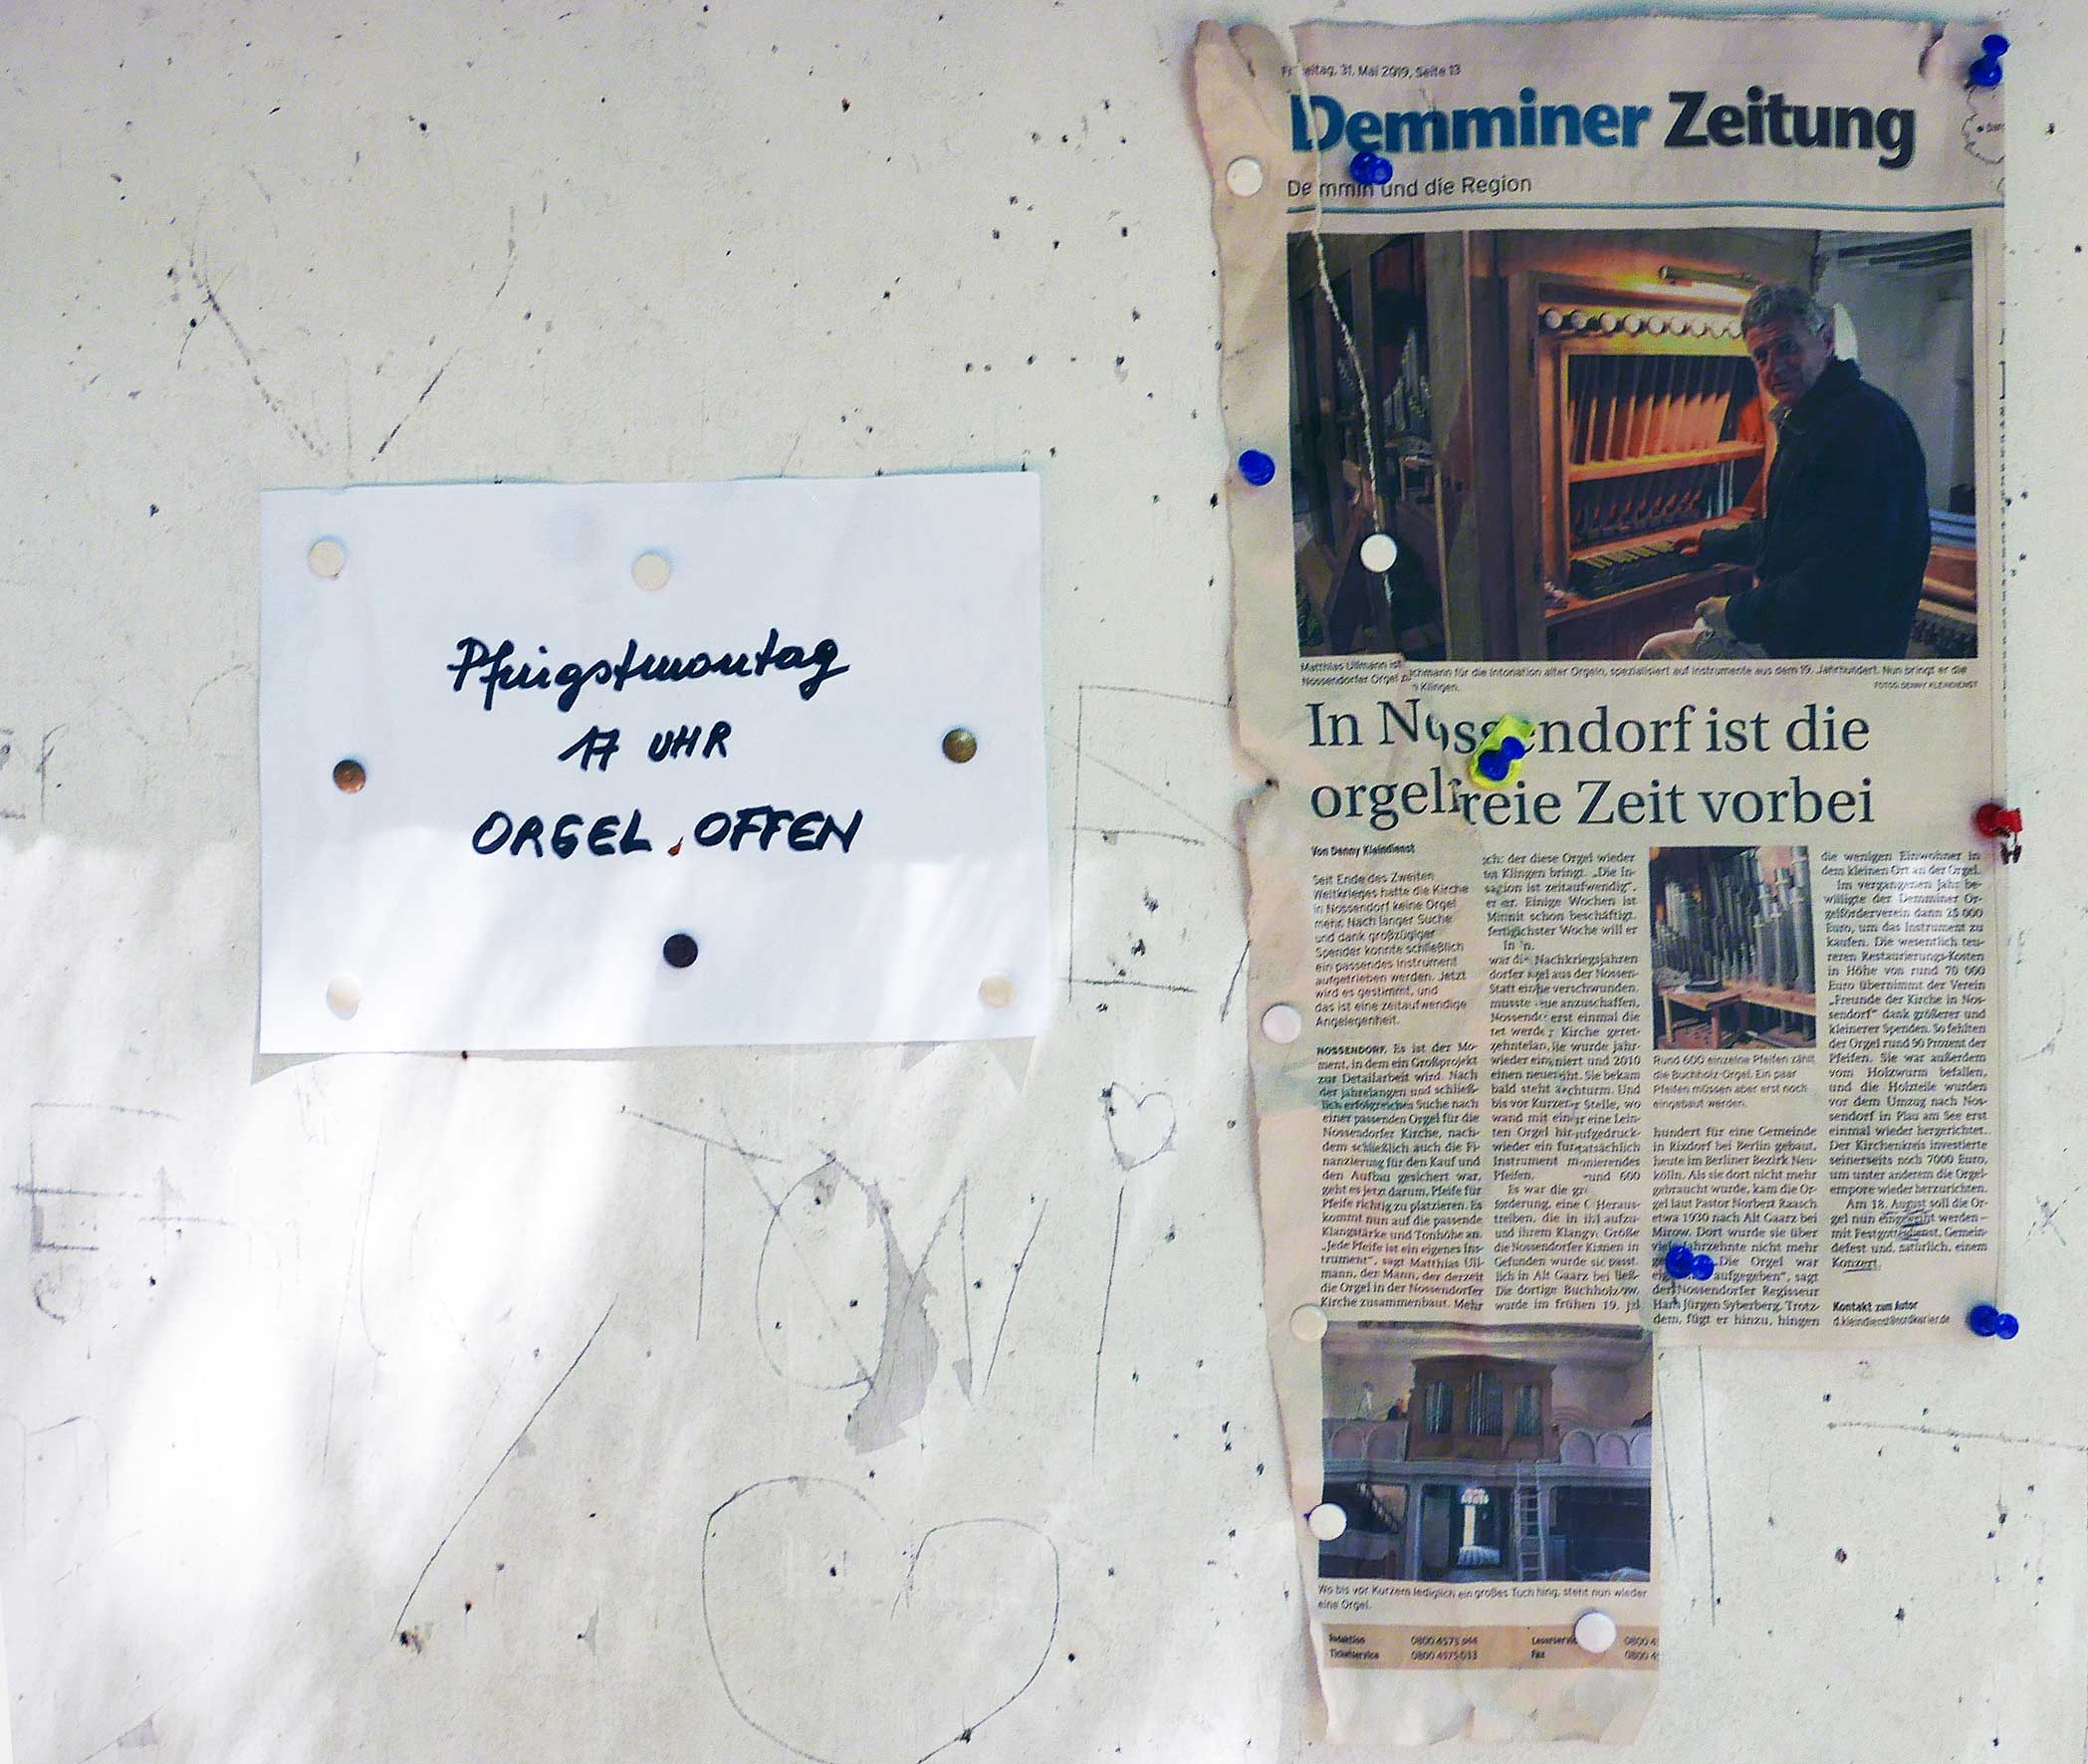 Pfingstmontag
17 UHR
ORGEL OFFEN
Freitag, 31. Mai 2019, Seite 13
Demminer Zeitung
Demmin und die Region
Matthias Ullmann ist Fachmann für die Intonation alter Orgeln, spezialisiert auf Instrumente aus dem 19. Jahrhundert. Nun bringt er die
Nossendorfer Orgel zum Klingen.
FOTOS: DENNY KLEINDIENST
In Nossendorf ist die
orgelfreie Zeit vorbei
Von Denny Kleindienst
Seit Ende des Zweiten
Weltkrieges hatte die Kirche
in Nossendorf keine Orgel
mehr. Nach langer Suche
und dank großzügiger
Spender konnte schließlich
ein passendes Instrument
aufgetrieben werden. Jetzt
wird es gestimmt, und
das ist eine zeitaufwendige
Angelegenheit.
NOSSENDORF. Es ist der Mo-
ment, in dem ein Großprojekt
zur Detailarbeit wird. Nach
der jahrelangen und schließ-
lich erfolgreichen Suche nach
einer passenden Orgel für die
Nossendorfer Kirche, nach-
dem schließlich auch die Fi-
nanzierung für den Kauf und
den Aufbau gesichert war,
geht es jetzt darum, Pfeife für
Pfeife richtig zu platzieren. Es
kommt nun auf die passende
Klangstärke und Tonhöhe an.
„Jede Pfeife ist ein eigenes Ins-
trument“, sagt Matthias Ull-
mann, der Mann, der derzeit
die Orgel in der Nossendorfer
Kirche zusammenbaut. Mehr
der diese Orgel wieder
Klingen bringt. „Die In-
ist zeitaufwendig“,
er. Einige Wochen ist
schon beschäftigt.
Woche will er
In
war die Nachkriegsjahren
dorfer aus der Nossen-
Statt verschwunden.
musste anzuschaffen,
erst einmal die
Kirche geret-
wurde jahr-
wieder und 2010
einen Sie bekam
bald steht Und
bis vor Kurzem Stelle, wo
wand mit eine Lein-
ten Orgel
wieder ein tatsächlich
Instrument
Pfeifen. und 600
Es war die
forderung, eine Heraus-
treiben, die in aufzu-
und ihrem Größe
die Nossendorfer in
Gefunden wurde sie
lich in Alt Gaarz bei
Die dortige Buchholz
wurde im frühen 19.
Rund 600 einzelne Pfeifen zählt
die Buchholz-Orgel. Ein paar
Pfeifen müssen aber erst noch
eingebaut werden.
hundert für eine Gemeinde
in Rixdorf bei Berlin gebaut,
heute im Berliner Bezirk Neu-
kölln. Als sie dort nicht mehr
gebraucht wurde, kam die Or-
gel laut Pastor Norbert Raasch
etwa 1930 nach Alt Gaarz bei
Mirow. Dort wurde sie über
viele Jahrzehnte nicht mehr
„Die Orgel war
aufgegeben“, sagt
der Nossendorfer Regisseur
Hans Jürgen Syberberg. Trotz-
dem, fügt er hinzu, hingen
die wenigen Einwohner in
dem kleinen Ort an der Orgel.
Im vergangenen Jahr be-
willigte der Demminer Or-
gelförderverein dann 25 000
Euro, um das Instrument zu
kaufen. Die wesentlich teu-
reren Restaurierungs-Kosten
in Höhe von rund 70 000
Euro übernimmt der Verein
„Freunde der Kirche in Nos-
sendorf“ dank größerer und
kleinerer Spenden. So fehlten
der Orgel rund 90 Prozent der
Pfeifen. Sie war außerdem
vom Holzwurm befallen,
und die Holzteile wurden
vor dem Umzug nach Nos-
sendorf in Plau am See erst
einmal wieder hergerichtet.
Der Kirchenkreis investierte
seinerseits noch 7000 Euro,
um unter anderem die Orgel-
empore wieder herzurichten.
Am 18. August soll die Or-
gel nun eingeweiht werden –
mit Festgottesdienst, Gemein-
defest und, natürlich, einem
Konzert.
Kontakt zum Autor
d.kleindienst@nordkurier.de
Wo bis vor Kurzem lediglich ein großes Tuch hing, steht nun wieder
eine Orgel.
Redaktion 0800 4575 044 Leserservice 0800 4
Ticketservice 0800 4575 033 Fax 0800 4